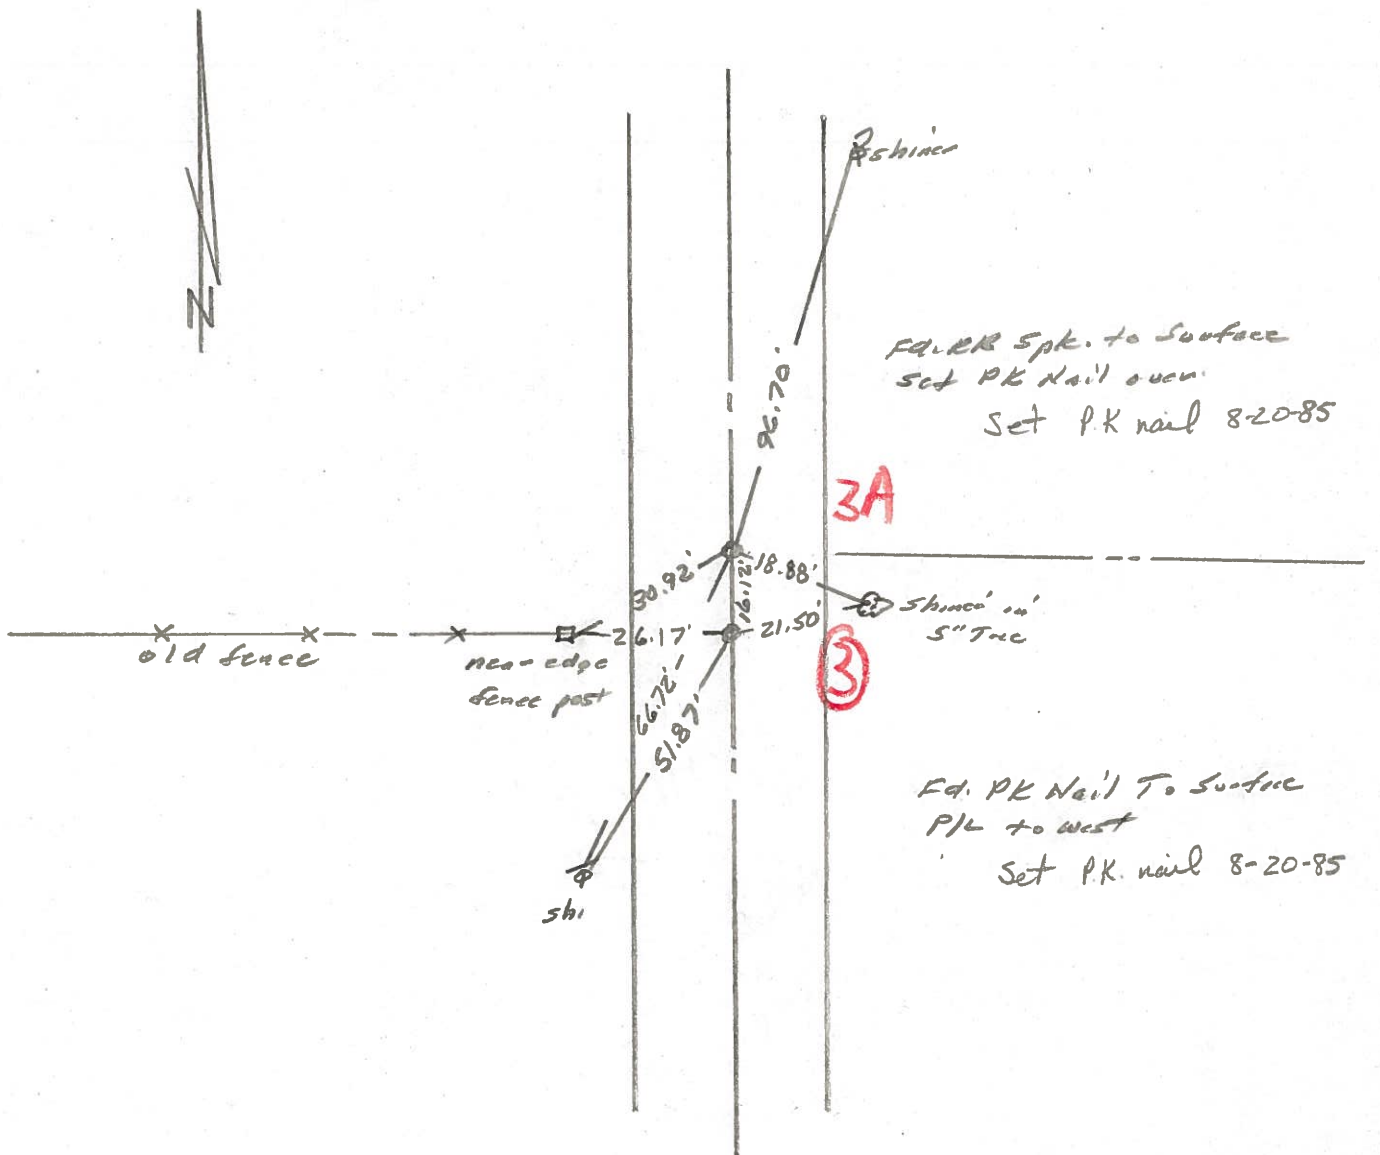 N
shiner
96.70'
Fd. RR Spk. to Surface
Set PK Nail over
Set P.K nail 8-20-85
3A
30.92'
16.12'
18.88'
shiner in
5" Tree
26.17'
21.50'
3
old fence
near edge
fence post
66.72'
51.87'
shi
Fd. PK Nail To Surface
P/L to west
Set P.K. nail 8-20-85